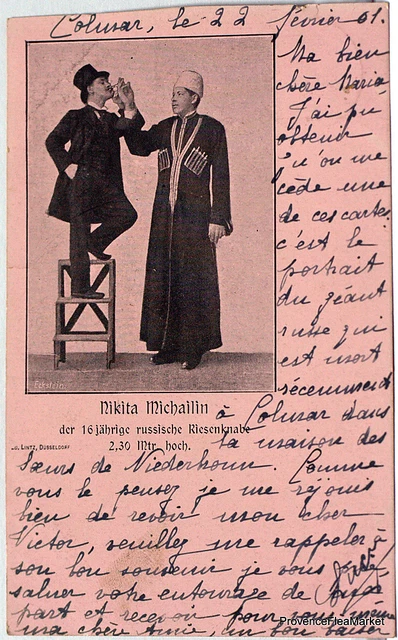 Colmar, le 22 février 01.
Ma bien
chère Maria,
J'ai pu
obtenir
qu'on me
cède une
de ces cartes
c'est le
portrait
du géant
russe qui
est mort
récemment
à Colmar dans
la maison des
Sœurs de Niederbronn. Comme
vous le pensez je me réjouis
bien de revoir mon cher
Victor, veuillez me rappeler à
son bon souvenir je vous
saluer votre entourage de
part et recevoir pour vous même
ma chère Amie, un bon baiser
Eckstein.
Nikita Michailin
der 16 jährige russische Riesenknabe
2,30 Mtr. hoch.
Lintz, Düsseldorf
ProvenceFleaMarket